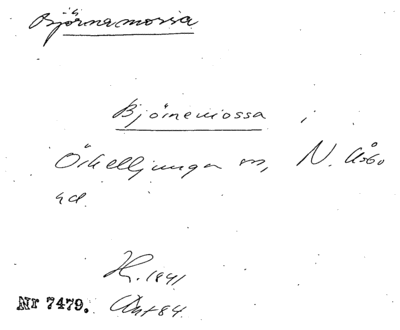 Björnamossa
Björnemossa i
Örkelljunga sn, N. Åsbo
hd.
H. 1841
Nr 7479.